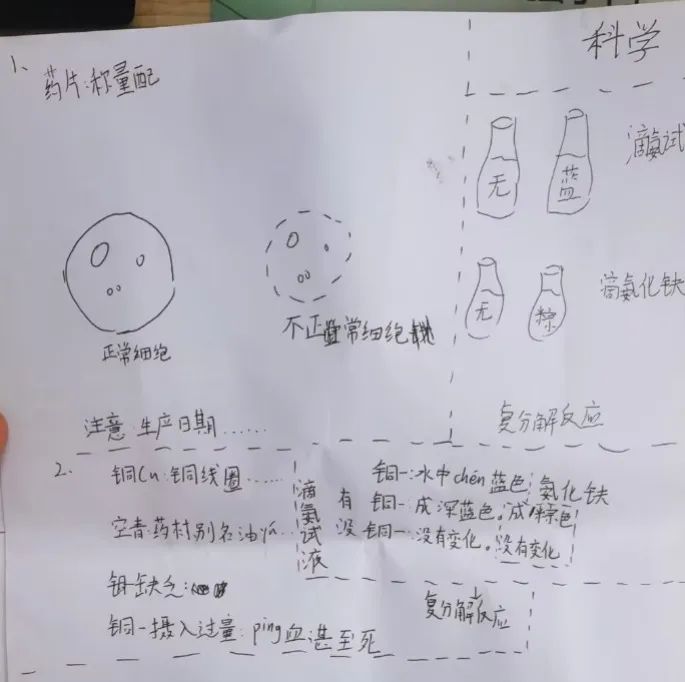 1、
药片:称量配
科学
无
蓝
滴氨试
无
棕
滴氨化铁
正常细胞
不正常细胞
注意:生产日期……
复分解反应
2.
铜Cu:铜线圈……
空青:药材别名油
铜缺乏:
铜-摄入过量:ping血甚至死
滴氨试液
有 铜-:水中chén蓝色
铜-:成深蓝色。
没 铜-:没有变化。
氨化铁
成棕色
没有变化
复分解反应